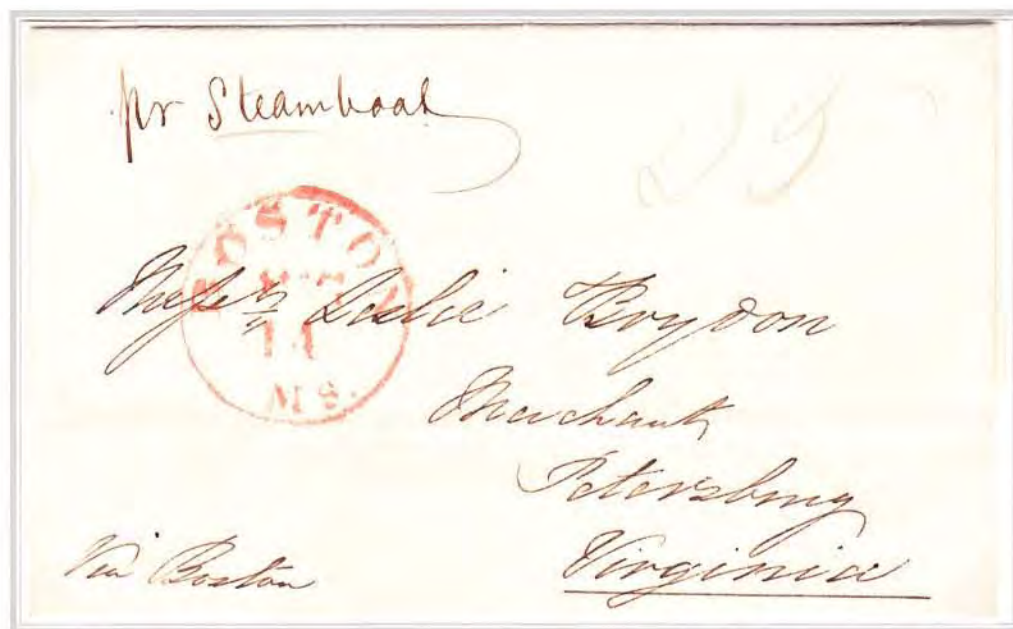 pr Steamboat
25
BOSTON
11
MS.
Messrs Leslie Brydon
Merchants
Petersburg
Virginia
Via Boston